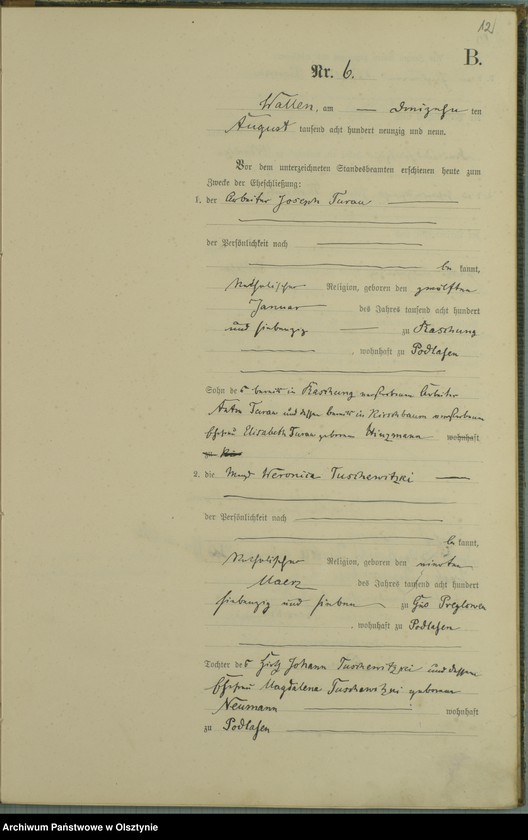 12
B.
Nr. 6.
Wallen, am — dreizehn ten
August tausend acht hundert neunzig und neun.
Vor dem unterzeichneten Standesbeamten erschienen heute zum
Zwecke der Eheschließung:
1. der Arbeiter Joseph Turau
der Persönlichkeit nach
be kannt,
katholischer Religion, geboren den zwölften
Januar des Jahres tausend acht hundert
und siebenzig zu Raschung
, wohnhaft zu Podlasen
Sohn des bereits in Raschung verstorbenen Arbeiter
Turau und dessen bereits in Kirschbaum verstorbenen
Ehefrau Elisabeth Turau geborene Hinzmann wohnhaft
zu
2. die Magd Weronica Tuschewitzki
der Persönlichkeit nach
be kannt,
katholischer Religion, geboren den vierten
Maerz des Jahres tausend acht hundert
siebenzig und sieben zu Gut Preylowen
, wohnhaft zu Podlasen
Tochter des Hirt Johann Tuschewitzki und dessen
Ehefrau Magdalena Tuschewitzki geborene
Neumann wohnhaft
zu Podlasen
Archiwum Państwowe w Olsztynie